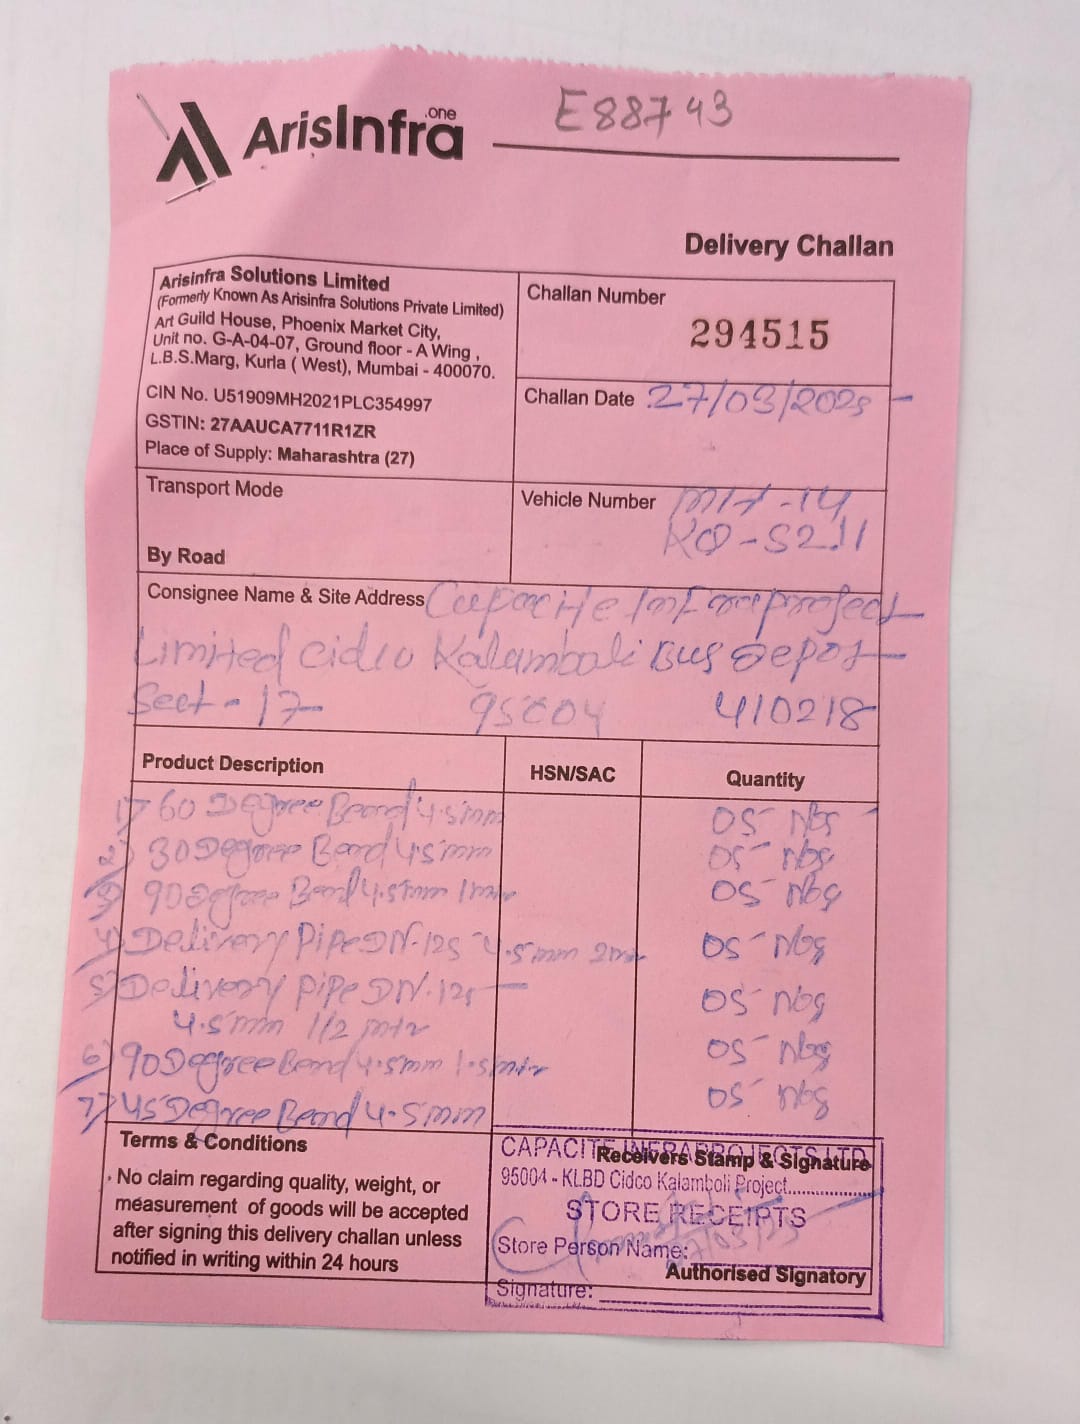 E88743
ArisInfra.one
Delivery Challan
Arisinfra Solutions Limited
(Formerly Known As Arisinfra Solutions Private Limited)
Art Guild House, Phoenix Market City,
Unit no. G-A-04-07, Ground floor - A Wing ,
L.B.S.Marg, Kurla ( West), Mumbai - 400070.
CIN No. U51909MH2021PLC354997
GSTIN: 27AAUCA7711R1ZR
Place of Supply: Maharashtra (27)
Challan Number
294515
Challan Date 27/03/2025
Transport Mode
By Road
Vehicle Number MH-14
KQ-5211
Consignee Name & Site Address Capacite Infraproject
Limited Cidco Kalamboli Bus Depot
Sect - 17 95004 410218
Product Description HSN/SAC Quantity
1) 60 Degree Bend 4.5mm 05 Nos
2) 30 Degree Bend 4.5mm 05 Nos
3) 90 Degree Bend 4.5mm 1mtr 05 Nos
4) Delivery Pipe DN-125 4.5mm 2mtr 05 Nos
5) Delivery Pipe DN-125 05 Nos
4.5mm 1/2 mtr
6) 90 Degree Bend 4.5mm 1.5mtr 05 Nos
7) 45 Degree Bend 4.5mm 05 Nos
Terms & Conditions
· No claim regarding quality, weight, or
measurement of goods will be accepted
after signing this delivery challan unless
notified in writing within 24 hours
CAPACITE INFRAPROJECTS LTD.
Receivers Stamp & Signature
95004 - KLBD Cidco Kalamboli Project
STORE RECEIPTS
Store Person Name:
Authorised Signatory
Signature: